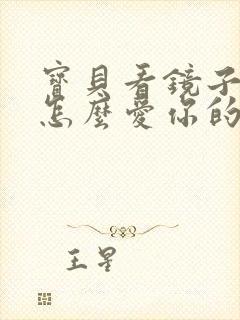 寶貝看鏡子
怎麼愛你的
王星